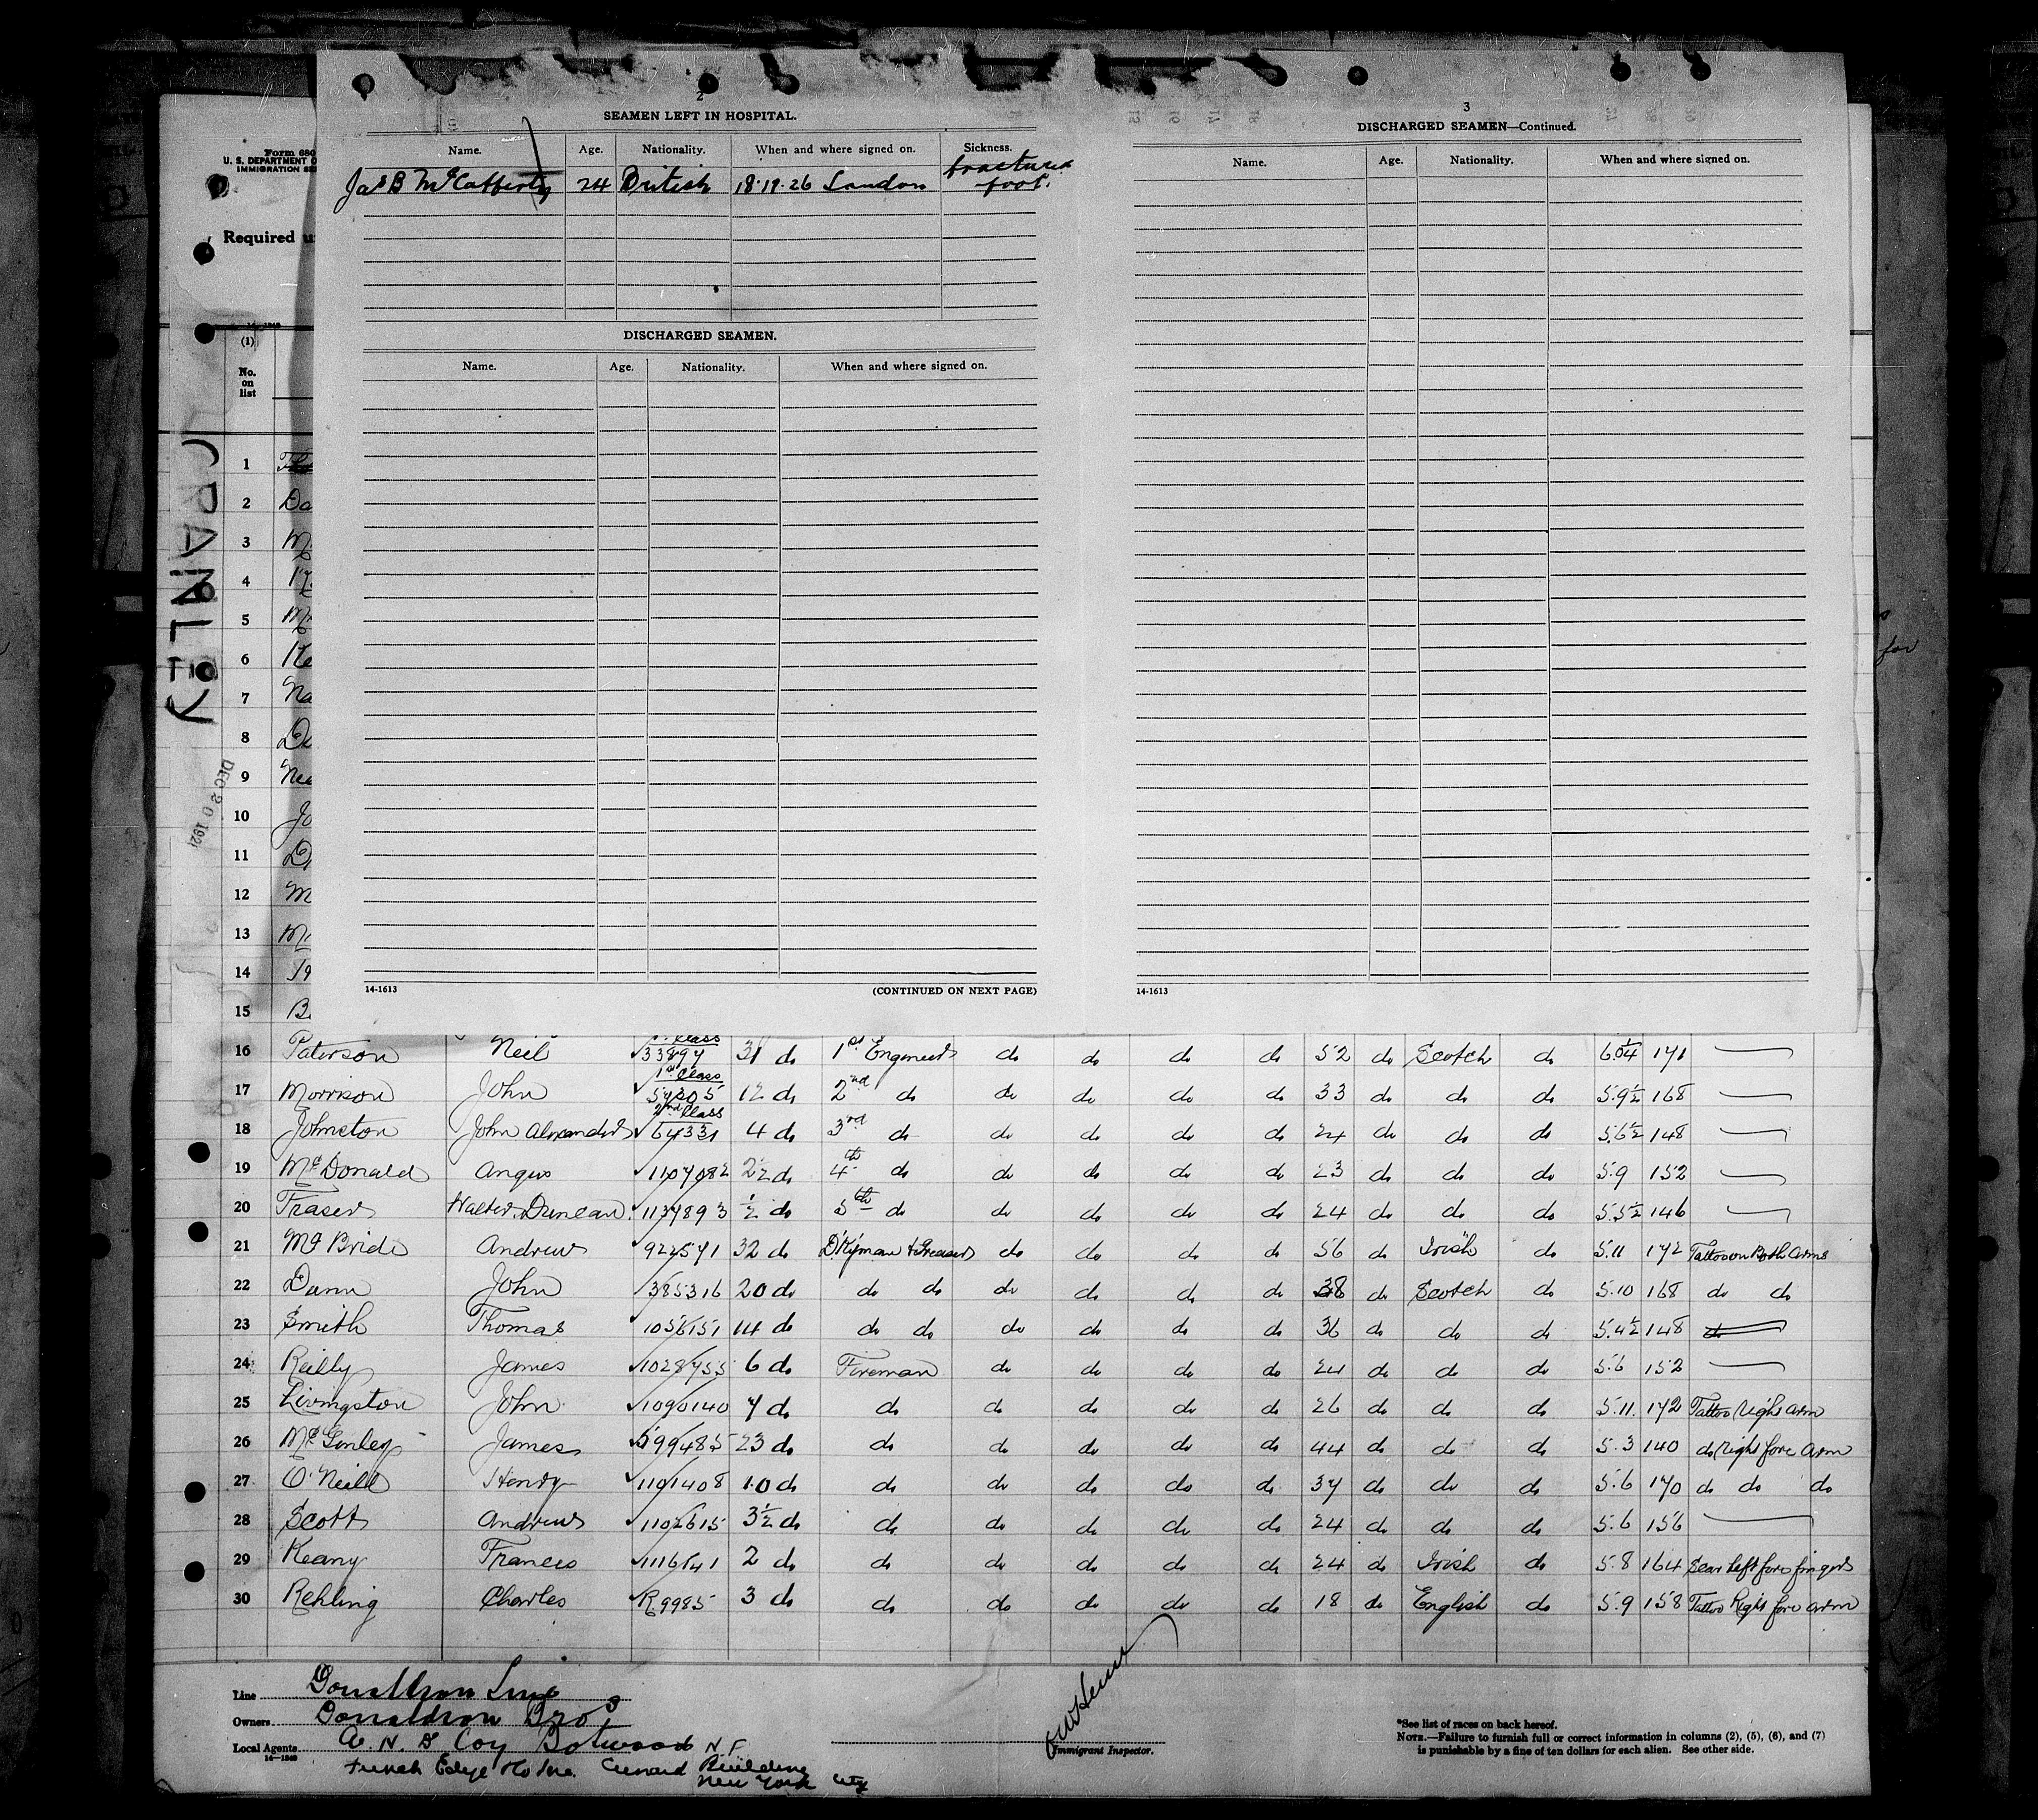 2
SEAMEN LEFT IN HOSPITAL.
Name. Age. Nationality. When and where signed on. Sickness.
Jas B McCafferty 24 British 18·11·26 London fractured foot.
DISCHARGED SEAMEN.
Name. Age. Nationality. When and where signed on.
14-1613 (CONTINUED ON NEXT PAGE)
3
DISCHARGED SEAMEN—Continued.
Name. Age. Nationality. When and where signed on.
14-1613
Form 680
U. S. DEPARTMENT O
IMMIGRATION SE
Required u
14-1240
(1)
No.
on
list
CRANLEY
DEC 20 192
1
2 Da
3 M
4
5 M
6 Ke
7 Na
8
9 Nei
10 Jo
11 D
12 M
13 M
14
15 B
1st Class
16 Paterson Neil 33894 31 do 1st Engineer do do do do 52 do Scotch do 6.0¼ 171
1st Class
17 Morrison John 12 do 2nd do do do do do 33 do do do 5.9½ 168
2nd Class
18 Johnston John Alexander 64331 4 do 3rd do do do do do 24 do do do 5.6½ 148
19 McDonald Angus 1107082 2½ do 4th do do do do do 23 do do do 5.9 152
20 Fraser Walter Duncan 1137893 ½ do 5th do do do do do 24 do do do 5.5½ 146
21 McBride Andrew 922571 32 do D'Kyman & Greaser do do do do 56 do Irish do 5.11 172 Tattoo on Both Arms
22 Dunn John 385316 20 do do do do do do do 38 do Scotch do 5.10 168 do do
23 Smith Thomas 1056151 14 do do do do do do do 36 do do do 5.4½ 148 do
24 Reilly James 1028755 6 do Fireman do do do do 24 do do do 5.6 152
25 Livingston John 1090140 7 do do do do do do 26 do do do 5.11. 172 Tattoo Right Arm
26 McGinley James 599485 23 do do do do do do 44 do do do 5.3 140 do Right fore Arm
27 O'Neill Henry 1101408 10 do do do do do do 37 do do do 5.6 170 do do do
28 Scott Andrew 1102615 3½ do do do do do do 24 do do do 5.6 156
29 Keany Francis 1116141 2 do do do do do do 24 do Irish do 5.8 164 Scar Left fore finger
30 Rehling Charles R9985 3 do do do do do do 18 do English do 5.9 158 Tattoo Right fore arm
Line Donaldson Line
Owners Donaldson Bros
Local Agents A. N. D Coy Botwood N.F
14-1240
French Edye & Co Inc. Cunard Building
New York City
Immigrant Inspector.
*See list of races on back hereof.
NOTE.—Failure to furnish full or correct information in columns (2), (5), (6), and (7)
is punishable by a fine of ten dollars for each alien. See other side.
for